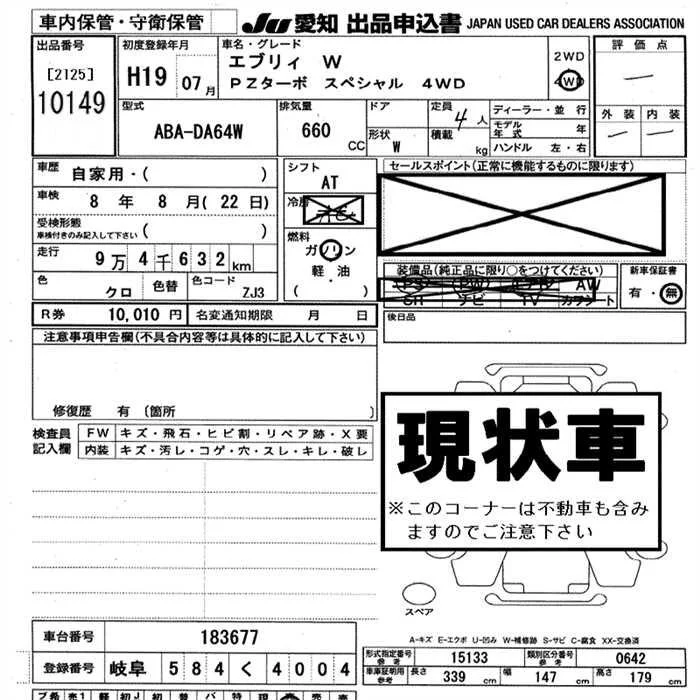 車内保管・守衛保管 JU 愛知 出品申込書 JAPAN USED CAR DEALERS ASSOCIATION
出品番号 [2125] 10149
初度登録年月 H19 07月
車名・グレード エブリィ W
PZターボ スペシャル 4WD
2WD
4WD
評価点
—
外装 内装
— —
型式 ABA-DA64W
排気量 660 CC
ドア
形状 W
定員 4 人
積載 kg
ディーラー・並行
モデル年式 年
ハンドル 左・右
車歴 自家用・( )
車検 8年 8月(22日)
受検形態
車検付きのみ記入して下さい ( )
走行 9万4千632km
色 クロ 色替 色コード ZJ3
シフト AT
冷房
燃料
ガソリン
軽・油
( )
セールスポイント(正常に機能するものに限ります)
装備品(純正品に限り○をつけてください)
PS PW エアB AW
SR ナビ TV カワシート
新車保証書
有・無
R券 10,010円 名変通知期限 月 日
後日品
注意事項申告欄(不具合内容等は具体的に記入して下さい)
修復歴 有 〔箇所 〕
検査員記入欄
FW キズ・飛石・ヒビ割・リペア跡・X要
内装 キズ・汚レ・コゲ・穴・スレ・キレ・破レ
現状車
※このコーナーは不動車も含み
ますのでご注意下さい
スペア
A-キズ E-エクボ U-凹み W-補修跡 S-サビ C-腐食 XX-交換済
車台番号 183677
登録番号 岐阜 584 く 4004
形式指定番号 参考 15133 類別区分番号 参考 0642
車庫証明用 参考 長さ 339 cm 幅 147 cm 高さ 179 cm